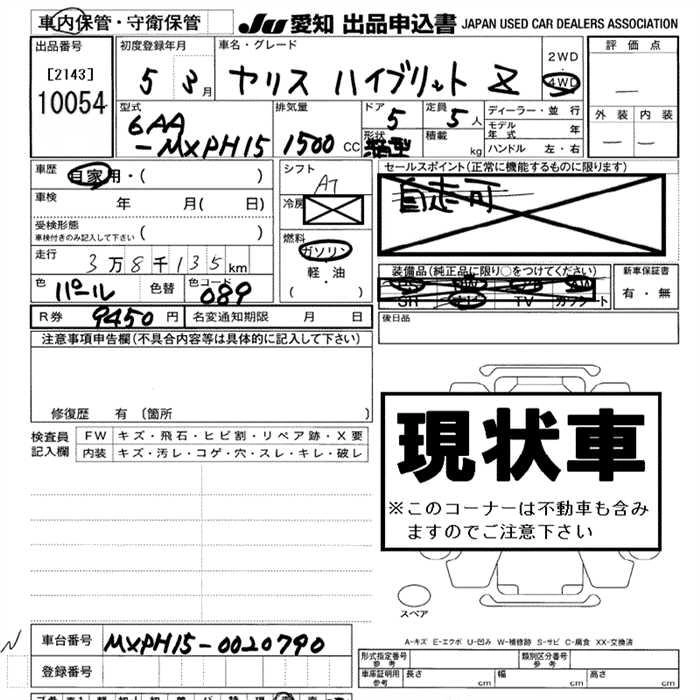 車内保管・守衛保管
JU 愛知 出品申込書 JAPAN USED CAR DEALERS ASSOCIATION
出品番号 [2143] 10054
初度登録年月 5 3月
車名・グレード ヤリス ハイブリット Z
2WD・4WD
評価点 —
外装 — 内装 —
型式 6AA-MXPH15
排気量 1500 CC
ドア 5
形状 箱型
定員 5人
積載 kg
ディーラー・並行
モデル年式 年
ハンドル 左・右
車歴 自家用・( )
車検 年 月( 日)
受検形態 ( )
車検付きのみ記入して下さい
走行 3万8千135km
色 パール 色替 色コード 089
シフト AT
冷房
燃料 ガソリン・軽・油 ( )
セールスポイント(正常に機能するものに限ります)
装備品(純正品に限り○をつけてください)
SR ナビ TV カワシート
新車保証書 有・無
R券 9450円 名変通知期限 月 日
後日品
注意事項申告欄(不具合内容等は具体的に記入して下さい)
修復歴 有 〔箇所 〕
検査員記入欄
FW キズ・飛石・ヒビ割・リペア跡・X要
内装 キズ・汚レ・コゲ・穴・スレ・キレ・破レ
現状車
※このコーナーは不動車も含み
ますのでご注意下さい
スペア
A-キズ E-エクボ U-凹み W-補修跡 S-サビ C-腐食 XX-交換済
車台番号 MXPH15-0020790
登録番号
形式指定番号 参考
類別区分番号 参考
車庫証明用 参考 長さ cm 幅 cm 高さ cm